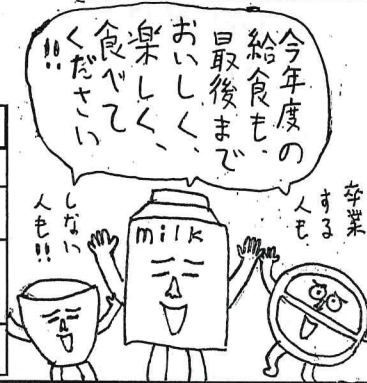 今年度の
給食も、
最後まで
おいしく、
楽しく、
食べて
ください
!!
卒業
する
人も
しない
人も!!
milk